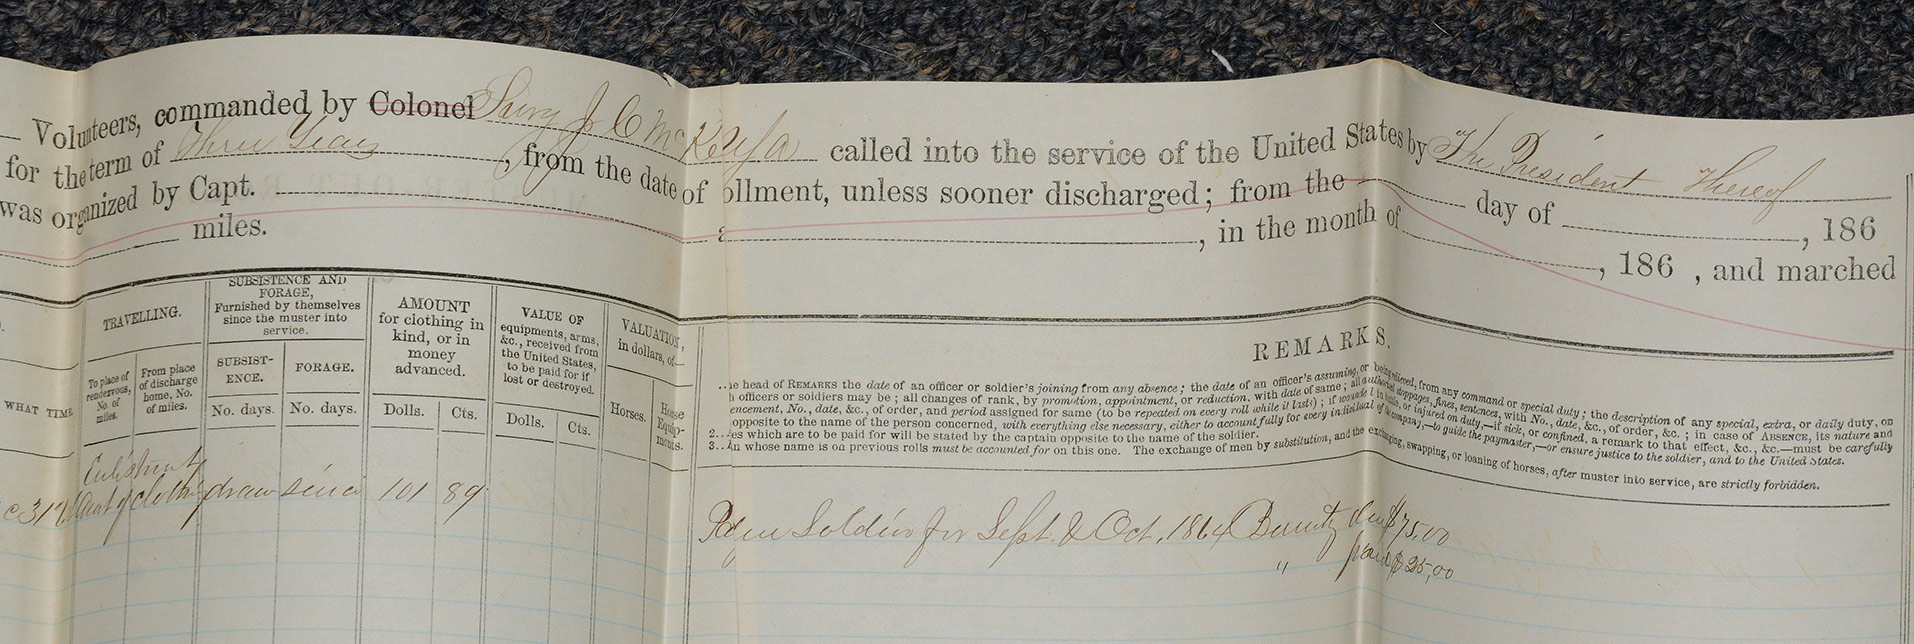 Volunteers, commanded by Colonel Surg J. C. McKey/a called into the service of the United States by The President thereof
for the term of Three Years, from the date of ollment, unless sooner discharged; from the day of , 186
was organized by Capt. , in the month of , 186 , and marched
miles.
TRAVELLING.
To place of rendezvous, No. of miles.
From place of discharge home, No. of miles.
SUBSISTENCE AND FORAGE,
Furnished by themselves since the muster into service.
SUBSISTENCE.
FORAGE.
No. days.
No. days.
AMOUNT
for clothing in kind, or in money advanced.
Dolls.
Cts.
VALUE OF
equipments, arms, &c., received from the United States, to be paid for if lost or destroyed.
Dolls.
Cts.
VALUATION,
in dollars, of—
Horses.
Horse Equipments.
WHAT TIME
REMARKS.
e head of REMARKS the date of an officer or soldier's joining from any absence; the date of an officer's assuming, or being relieved, from any command or special duty; the description of any special, extra, or daily duty, on
h officers or soldiers may be; all changes of rank, by promotion, appointment, or reduction, with date of same; all authorized stoppages, fines, sentences, with No., date, &c., of order, &c.; in case of ABSENCE, its nature and
encement, No., date, &c., of order, and period assigned for same (to be repeated on every roll while it lasts); if wounded in battle, or injured on duty,—if sick, or confined, a remark to that effect, &c., &c.—must be carefully
opposite to the name of the person concerned, with everything else necessary, either to account fully for every individual of the company,—to guide the paymaster,—or ensure justice to the soldier, and to the United States.
2...es which are to be paid for will be stated by the captain opposite to the name of the soldier.
3...an whose name is on previous rolls must be accounted for on this one. The exchange of men by substitution, and the exchanging, swapping, or loaning of horses, after muster into service, are strictly forbidden.
Enlistment
Amt of clothing drawn since 101 89
Soldier for Sept. & Oct. 1864 Bounty due $75.00
" paid $25.00